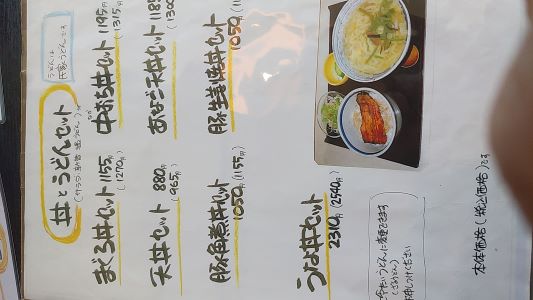 うどんは
氏家うどんです
丼とうどんセット
(サラダ、新香、温うどん)付
まぐろ丼セット 1155円
(1270円)
中おち丼セット 1195円
(1315円)
天丼セット 880円
(965円)
あなご天丼セット
豚角煮丼セット
1050円(1155円)
豚生姜焼丼セット
1050円
うな丼セット
2310円(2540円)
うどんに変更できます
(ざるうどん)
お申し付けください
本体価格(税込価格)です